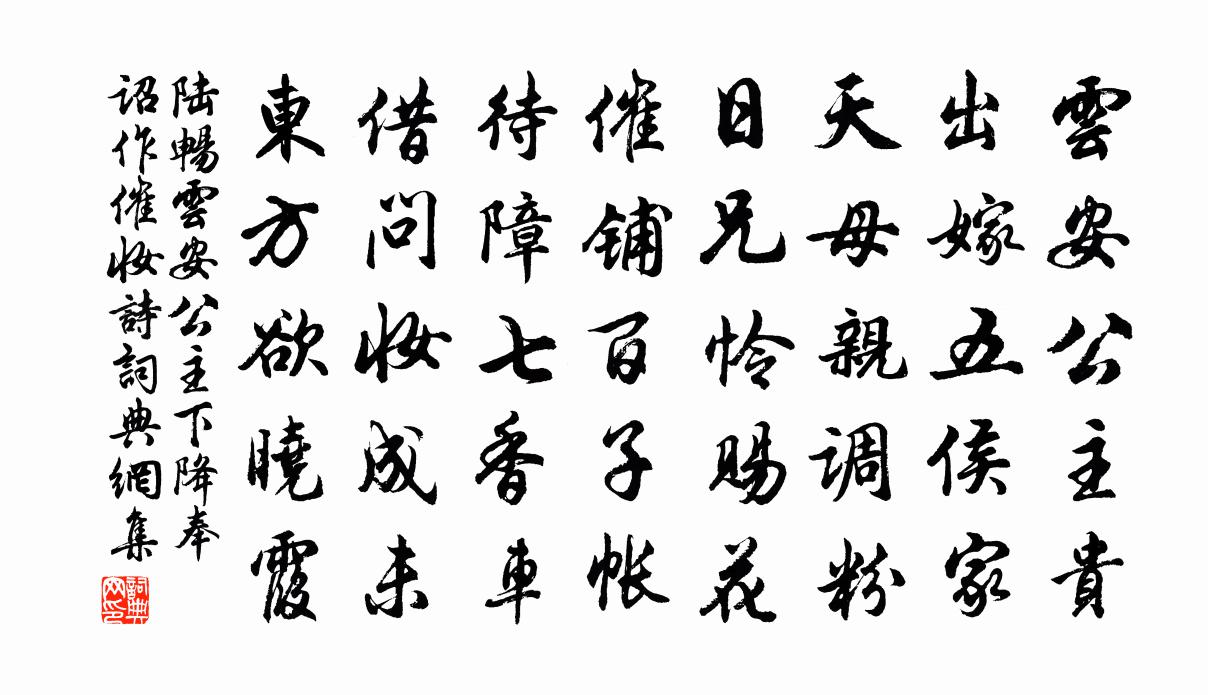 雲安公主貴
出嫁五侯家
天母親調粉
日兄怜賜花
催鋪百子帳
待障七香車
借問妝成未
東方欲曉霞
陸暢雲安公主下降奉
詔作催妝詩詞典網集
詞典
网印